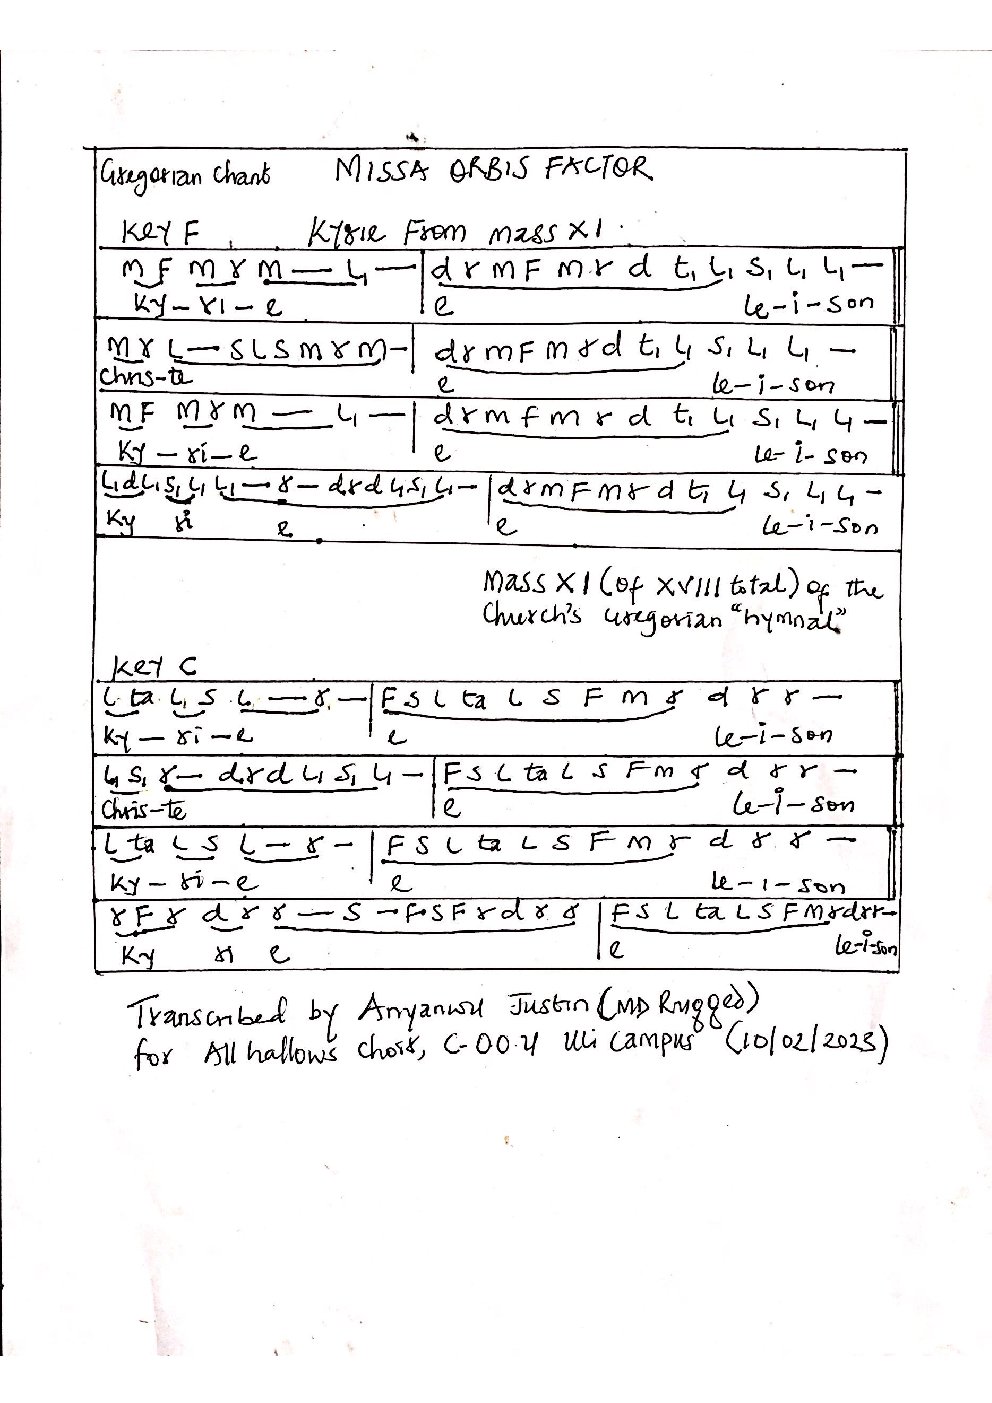 Gregorian Chant MISSA ORBIS FACTOR
Key F Kyrie From mass XI.
m F m r m — L₁ — | d r m F m r d t₁ L₁ S₁ L₁ L₁ —
Ky — ri — e e le - i - son
m r L — S L S m r m — | d r m F m r d t₁ L₁ S₁ L₁ L₁ —
Chris-te e le - i - son
m F m r m — L₁ — | d r m f m r d t₁ L₁ S₁ L₁ L₁ —
Ky — ri — e e le - i - son
L₁ d L₁ S₁ L₁ L₁ — r — d r d L₁ S₁ L₁ — | d r m F m r d t₁ L₁ S₁ L₁ L₁ —
Ky ri e e le - i - son
Mass XI (of XVIII total) of the
Church's Gregorian "hymnal"
Key C
L ta L₁ S L — r. — | F S L ta L S F m r d r r —
Ky — ri — e e le - i - son
L₁ S₁ r — d r d L₁ S₁ L₁ — | F S L ta L S F m r d r r —
Chris-te e le - i - son
L ta L S L — r — | F S L ta L S F m r d r r —
Ky — ri — e e le - i - son
r F r d r r — S — F S F r d r r | F S L ta L S F m r d r r —
Ky ri e e le-i-son
Transcribed by Anyanwu Justin (MD Rugged)
for All hallows choir, C-00.4 Uli Campus (10/02/2023)